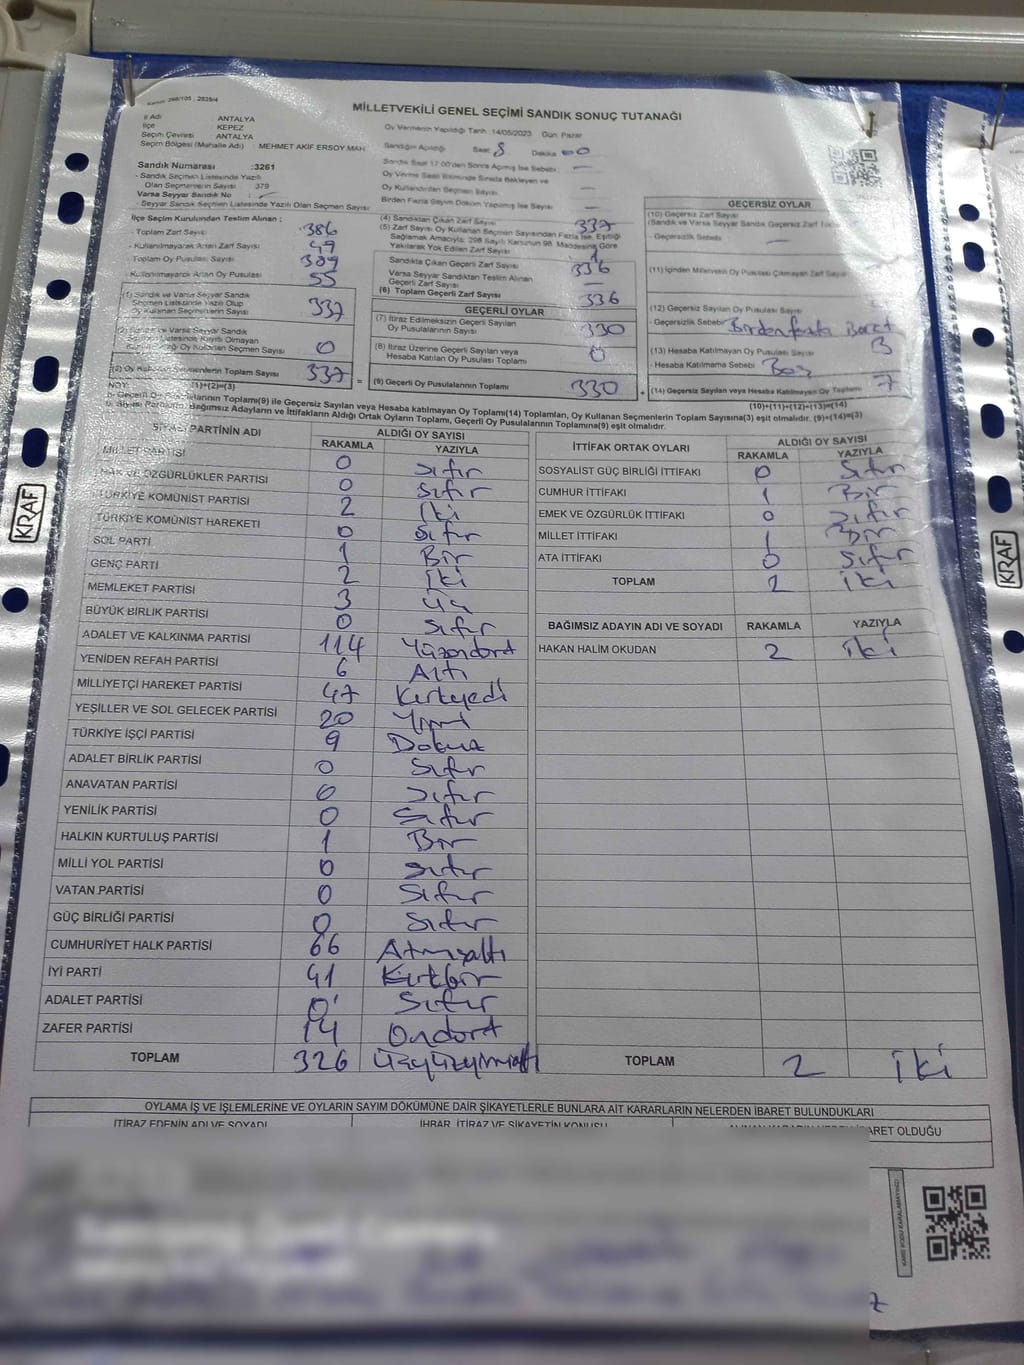 Kanun: 298/105 ; 2839/4
MİLLETVEKİLİ GENEL SEÇİMİ SANDIK SONUÇ TUTANAĞI
İl Adı : ANTALYA
İlçe : KEPEZ
Seçim Çevresi : ANTALYA
Seçim Bölgesi (Mahalle Adı) : MEHMET AKİF ERSOY MAH.
Oy Vermenin Yapıldığı Tarih : 14/05/2023 Gün: Pazar
Sandığın Açıldığı Saat 8 Dakika 00
Sandık Saat 17.00'den Sonra Açılmış İse Sebebi : —
Oy Verme Saati Bitiminde Sırada Bekleyen ve
Oy Kullandırılan Seçmen Sayısı —
Birden Fazla Sayım Döküm Yapılmış İse Sayısı —
Sandık Numarası :3261
- Sandık Seçmen Listesinde Yazılı
Olan Seçmenlerin Sayısı 379
Varsa Seyyar Sandık No :
- Seyyar Sandık Seçmen Listesinde Yazılı Olan Seçmen Sayısı:
İlçe Seçim Kurulundan Teslim Alınan :
- Toplam Zarf Sayısı 386
- Kullanılmayarak Artan Zarf Sayısı 49
- Toplam Oy Pusulası 389
- Kullanılmayarak Artan Oy Pusulası 55
(1) Sandık ve Varsa Seyyar Sandık
Seçmen Listesinde Yazılı Olup
Oy Kullanan Seçmenlerin Sayısı 337
(2) Sandık ve Varsa Seyyar Sandık
Seçmen Listesinde Kayıtlı Olmayan
Oy Kullanan Seçmen Sayısı 0
(3) Oy Kullanan Seçmenlerin Toplam Sayısı 337
(4) Sandıktan Çıkan Zarf Sayısı 337
(5) Zarf Sayısı Oy Kullanan Seçmen Sayısından Fazla İse, Eşitliği
Sağlamak Amacıyla; 298 Sayılı Kanunun 98. Maddesine Göre
Yakılarak Yok Edilen Zarf Sayısı
Sandıkta Çıkan Geçerli Zarf Sayısı 336
Varsa Seyyar Sandıktan Teslim Alınan
Geçerli Zarf Sayısı —
(6) Toplam Geçerli Zarf Sayısı 336
GEÇERLİ OYLAR
(7) İtiraz Edilmeksizin Geçerli Sayılan
Oy Pusulalarının Sayısı 330
(8) İtiraz Üzerine Geçerli Sayılan veya
Hesaba Katılan Oy Pusulası Toplamı 0
(9) Geçerli Oy Pusulalarının Toplamı 330
GEÇERSİZ OYLAR
(10) Geçersiz Zarf Sayısı
(Sandık ve Varsa Seyyar Sandık Geçersiz Zarf
- Geçersizlik Sebebi —
(11) İçinden Milletvekili Oy Pusulası Çıkmayan Zarf Sayısı
(12) Geçersiz Sayılan Oy Pusulası Sayısı
- Geçersizlik Sebebi Birden fazla
(13) Hesaba Katılmayan Oy Pusulası Sayısı 3
- Hesaba Katılmama Sebebi Boş
(14) Geçersiz Sayılan veya Hesaba Katılmayan Oy Toplamı 7
NOT: (1)+(2)=(3) (10)+(11)+(12)+(13)=(14)
Geçerli Oy Pusulalarının Toplamı(9) ile Geçersiz Sayılan veya Hesaba katılmayan Oy Toplamı(14) Toplamları, Oy Kullanan Seçmenlerin Toplam Sayısına(3) eşit olmalıdır. (9)+(14)=(3)
b- Siyasi Partilerin, Bağımsız Adayların ve İttifakların Aldığı Ortak Oyların Toplamı, Geçerli Oy Pusulalarının Toplamına(9) eşit olmalıdır.
SİYASİ PARTİNİN ADI ALDIĞI OY SAYISI
RAKAMLA YAZIYLA
MİLLET PARTİSİ 0 Sıfır
HAK VE ÖZGÜRLÜKLER PARTİSİ 0 Sıfır
TÜRKİYE KOMÜNİST PARTİSİ 2 İki
TÜRKİYE KOMÜNİST HAREKETİ 0 Sıfır
SOL PARTİ 1 Bir
GENÇ PARTİ 2 İki
MEMLEKET PARTİSİ 3 Üç
BÜYÜK BİRLİK PARTİSİ 0 Sıfır
ADALET VE KALKINMA PARTİSİ 114 Yüzondört
YENİDEN REFAH PARTİSİ 6 Altı
MİLLİYETÇİ HAREKET PARTİSİ 47 Kırkyedi
YEŞİLLER VE SOL GELECEK PARTİSİ 20 Yirmi
TÜRKİYE İŞÇİ PARTİSİ 9 Dokuz
ADALET BİRLİK PARTİSİ 0 Sıfır
ANAVATAN PARTİSİ 0 Sıfır
YENİLİK PARTİSİ 0 Sıfır
HALKIN KURTULUŞ PARTİSİ 1 Bir
MİLLİ YOL PARTİSİ 0 Sıfır
VATAN PARTİSİ 0 Sıfır
GÜÇ BİRLİĞİ PARTİSİ 0 Sıfır
CUMHURİYET HALK PARTİSİ 66 Atmışaltı
İYİ PARTİ 41 Kırkbir
ADALET PARTİSİ 0 Sıfır
ZAFER PARTİSİ 14 Ondört
TOPLAM 326 Üçyüzyirmialtı
İTTİFAK ORTAK OYLARI ALDIĞI OY SAYISI
RAKAMLA YAZIYLA
SOSYALİST GÜÇ BİRLİĞİ İTTİFAKI 0 Sıfır
CUMHUR İTTİFAKI 1 Bir
EMEK VE ÖZGÜRLÜK İTTİFAKI 0 Sıfır
MİLLET İTTİFAKI 1 Bir
ATA İTTİFAKI 0 Sıfır
TOPLAM 2 İki
BAĞIMSIZ ADAYIN ADI VE SOYADI RAKAMLA YAZIYLA
HAKAN HALİM OKUDAN 2 İki
TOPLAM 2 İki
OYLAMA İŞ VE İŞLEMLERİNE VE OYLARIN SAYIM DÖKÜMÜNE DAİR ŞİKAYETLERLE BUNLARA AİT KARARLARIN NELERDEN İBARET BULUNDUKLARI
İTİRAZ EDENİN ADI VE SOYADI İHBAR, İTİRAZ VE ŞİKAYETİN KONUSU ALINAN KARARIN NEDEN İBARET OLDUĞU
KARE KODU KARALAMAYINIZ!
KRAF
KRAF